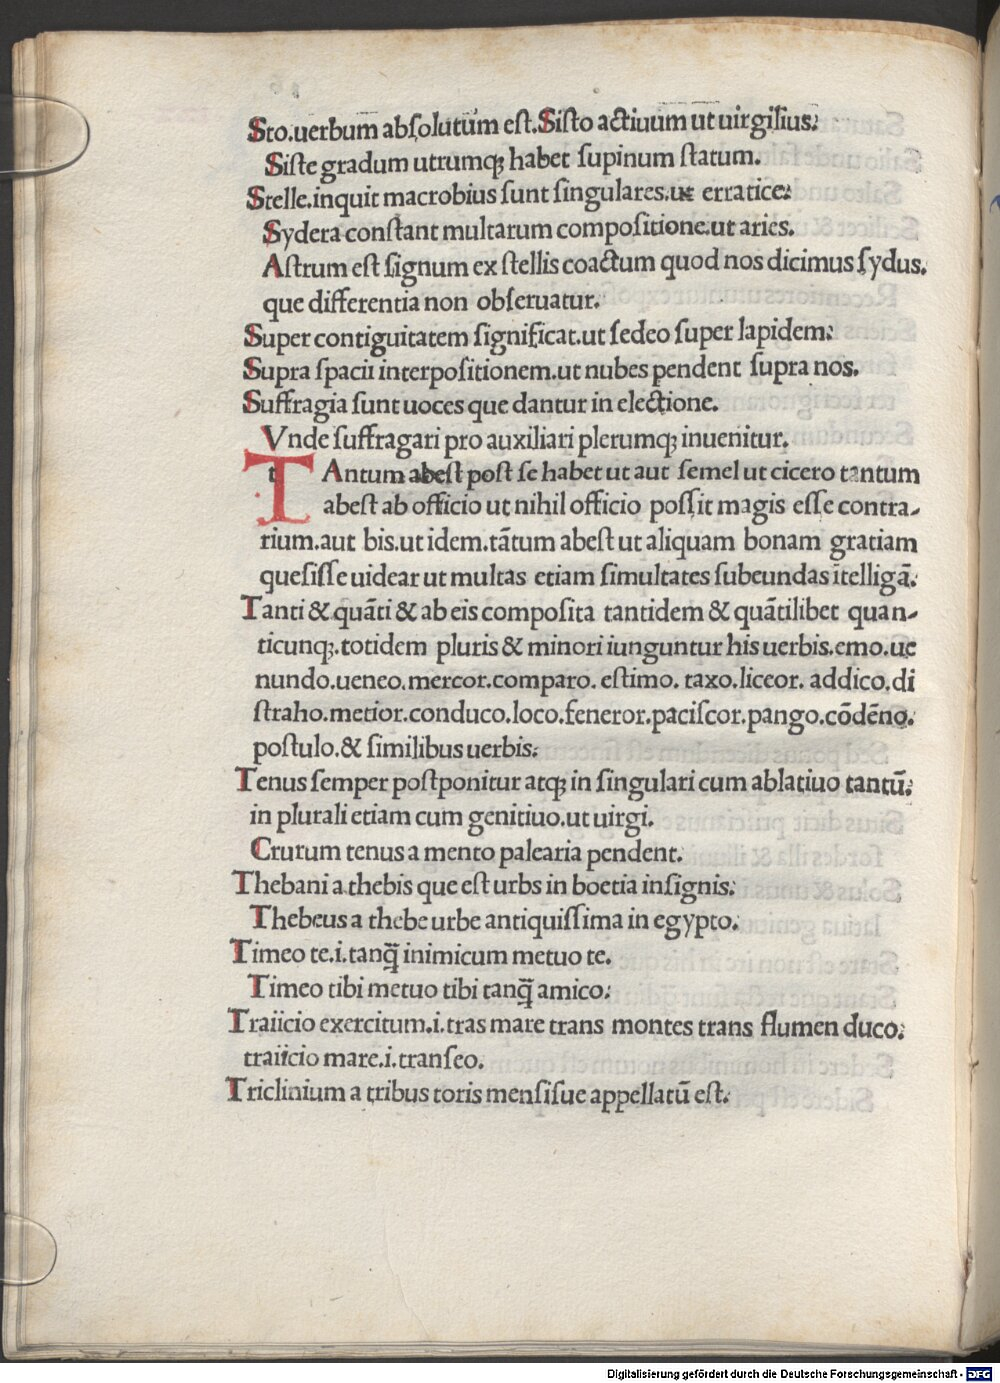 Sto.uerbum absolutum est.Sisto actiuum ut uirgilius:
Siste gradum utrumq; habet supinum statum.
Stelle.inquit macrobius sunt singulares.ut erratice:
Sydera constant multarum compositione.ut aries.
Astrum est signum ex stellis coactum quod nos dicimus sydus.
que differentia non obseruatur.
Super contiguitatem significat.ut sedeo super lapidem:
Supra spacii interpositionem.ut nubes pendent supra nos.
Suffragia sunt uoces que dantur in electione.
Vnde suffragari pro auxiliari plerumq; inuenitur.
TAntum abest post se habet ut aut semel ut cicero tantum
abest ab officio ut nihil officio possit magis esse contra-
rium.aut bis.ut idem.tātum abest ut aliquam bonam gratiam
quesisse uidear ut multas etiam simultates subeundas ītelligā:
Tanti & quāti & ab eis composita tantidem & quātilibet quan-
ticunq;.totidem pluris & minori iunguntur his uerbis.emo.ue
nundo.ueneo.mercor.comparo.estimo.taxo.liceor.addico.di
straho.metior.conduco.loco.feneror.paciscor.pango.cōdēno.
postulo.& similibus uerbis:
Tenus semper postponitur atq; in singulari cum ablatiuo tantū:
in plurali etiam cum genitiuo.ut uirgi.
Crurum tenus a mento palearia pendent.
Thebani a thebis que est urbs in boetia insignis:
Thebeus a thebe urbe antiquissima in egypto:
Timeo te.i.tanq̄ inimicum metuo te.
Timeo tibi metuo tibi tanq̄ amico:
Traiicio exercitum.i.tras mare trans montes trans flumen duco:
traiicio mare.i.transeo.
Triclinium a tribus toris mensisue appellatū est:
Digitalisierung gefördert durch die Deutsche Forschungsgemeinschaft - DFG